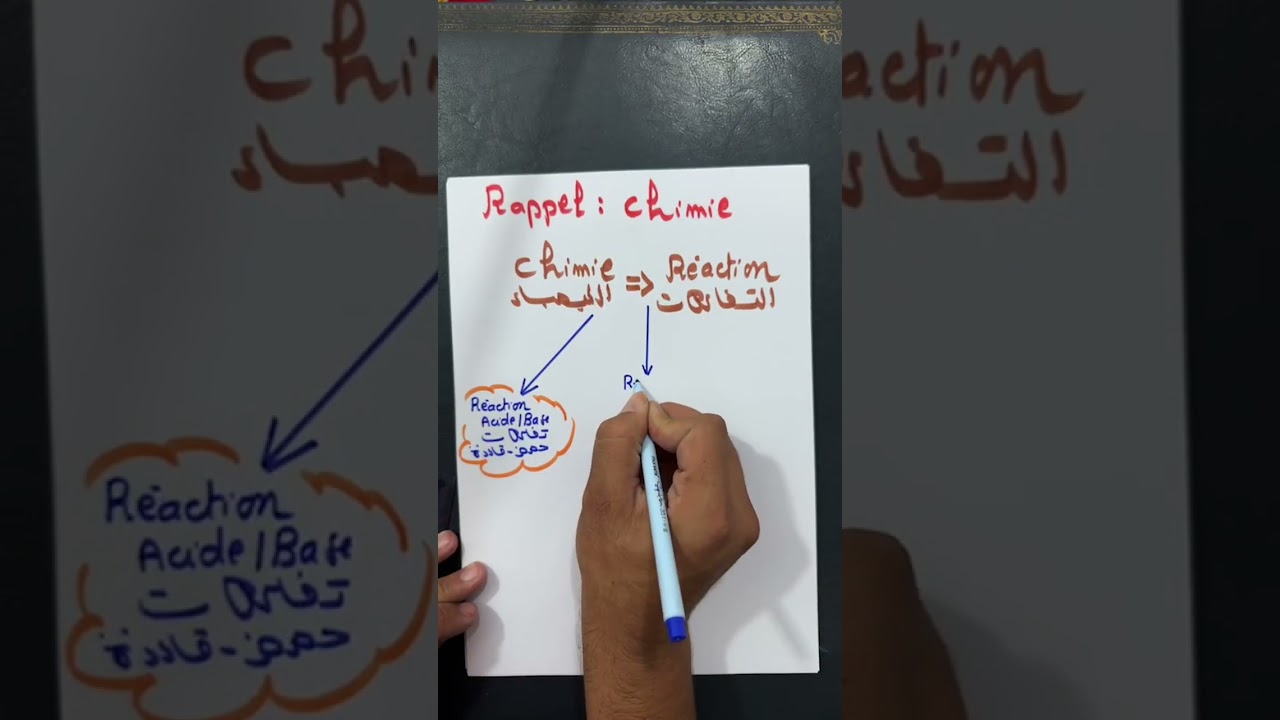 Rappel : chimie
chimie => Réaction
الكيمياء التفاعلات
Réaction
Acide/Base
تفاعلات
حمض - قاعدة
R